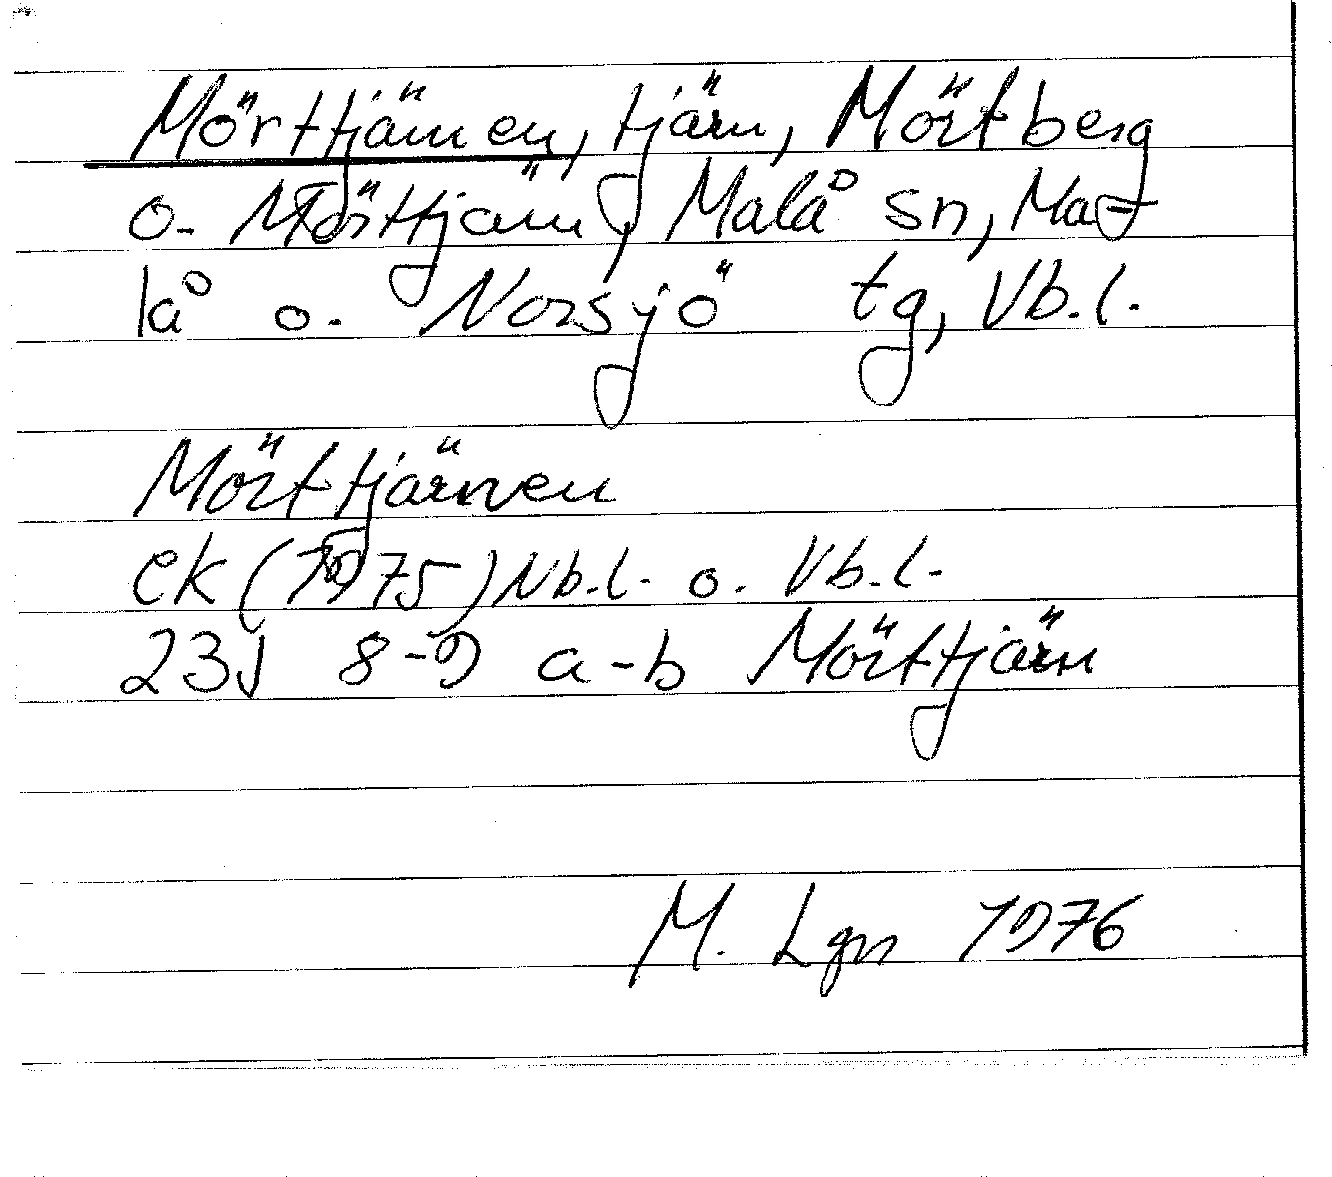 Mörttjärnen, tjärn, Mörtberg
o. Mörttjärn, Malå sn, Ma-
lå o. Norsjö tg, Vb.l.
Mörttjärnen
ek (1975) Nb.l. o. Vb.l.
23J 8-9 a-b Mörttjärn
M. Lgn 1976